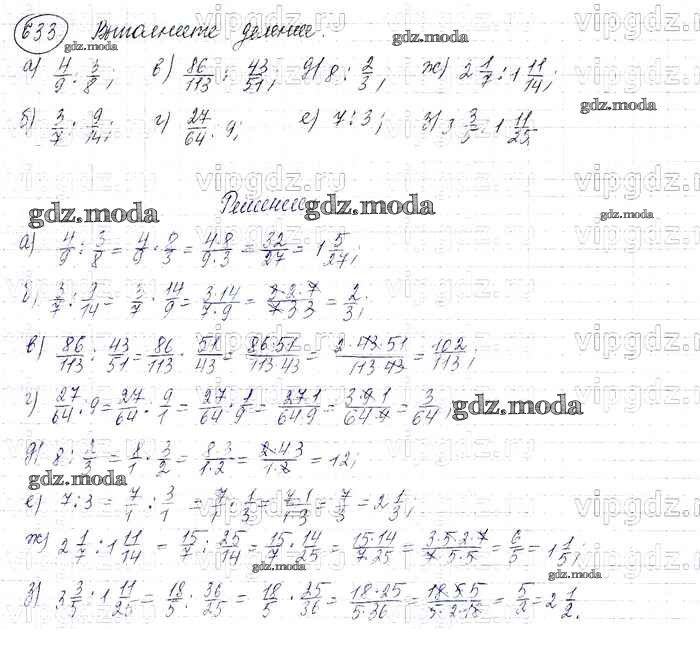 633 Выполните деление.
а) 4/9 : 3/8; в) 86/113 : 43/51; д) 8 : 2/3; ж) 2 1/7 : 1 11/14;
б) 3/7 : 9/14; г) 27/64 : 9; е) 7 : 3; з) 3 3/5 : 1 11/25
Решение
а) 4/9 : 3/8 = 4/9 · 8/3 = 4·8/9·3 = 32/27 = 1 5/27;
б) 3/7 : 9/14 = 3/7 · 14/9 = 3·14/7·9 = 3·2·7/7·3·3 = 2/3;
в) 86/113 : 43/51 = 86/113 · 51/43 = 86·51/113·43 = 2·43·51/113·43 = 102/113;
г) 27/64 : 9 = 27/64 : 9/1 = 27/64 · 1/9 = 27·1/64·9 = 3·9·1/64·9 = 3/64;
д) 8 : 2/3 = 8/1 · 3/2 = 8·3/1·2 = 2·4·3/1·2 = 12;
е) 7 : 3 = 7/1 : 3/1 = 7/1 · 1/3 = 7·1/1·3 = 7/3 = 2 1/3;
ж) 2 1/7 : 1 11/14 = 15/7 : 25/14 = 15/7 · 14/25 = 15·14/7·25 = 3·5·2·7/7·5·5 = 6/5 = 1 1/5;
з) 3 3/5 : 1 11/25 = 18/5 : 36/25 = 18/5 · 25/36 = 18·25/5·36 = 18·5·5/5·2·18 = 5/2 = 2 1/2.
gdz.moda
vipgdz.ru